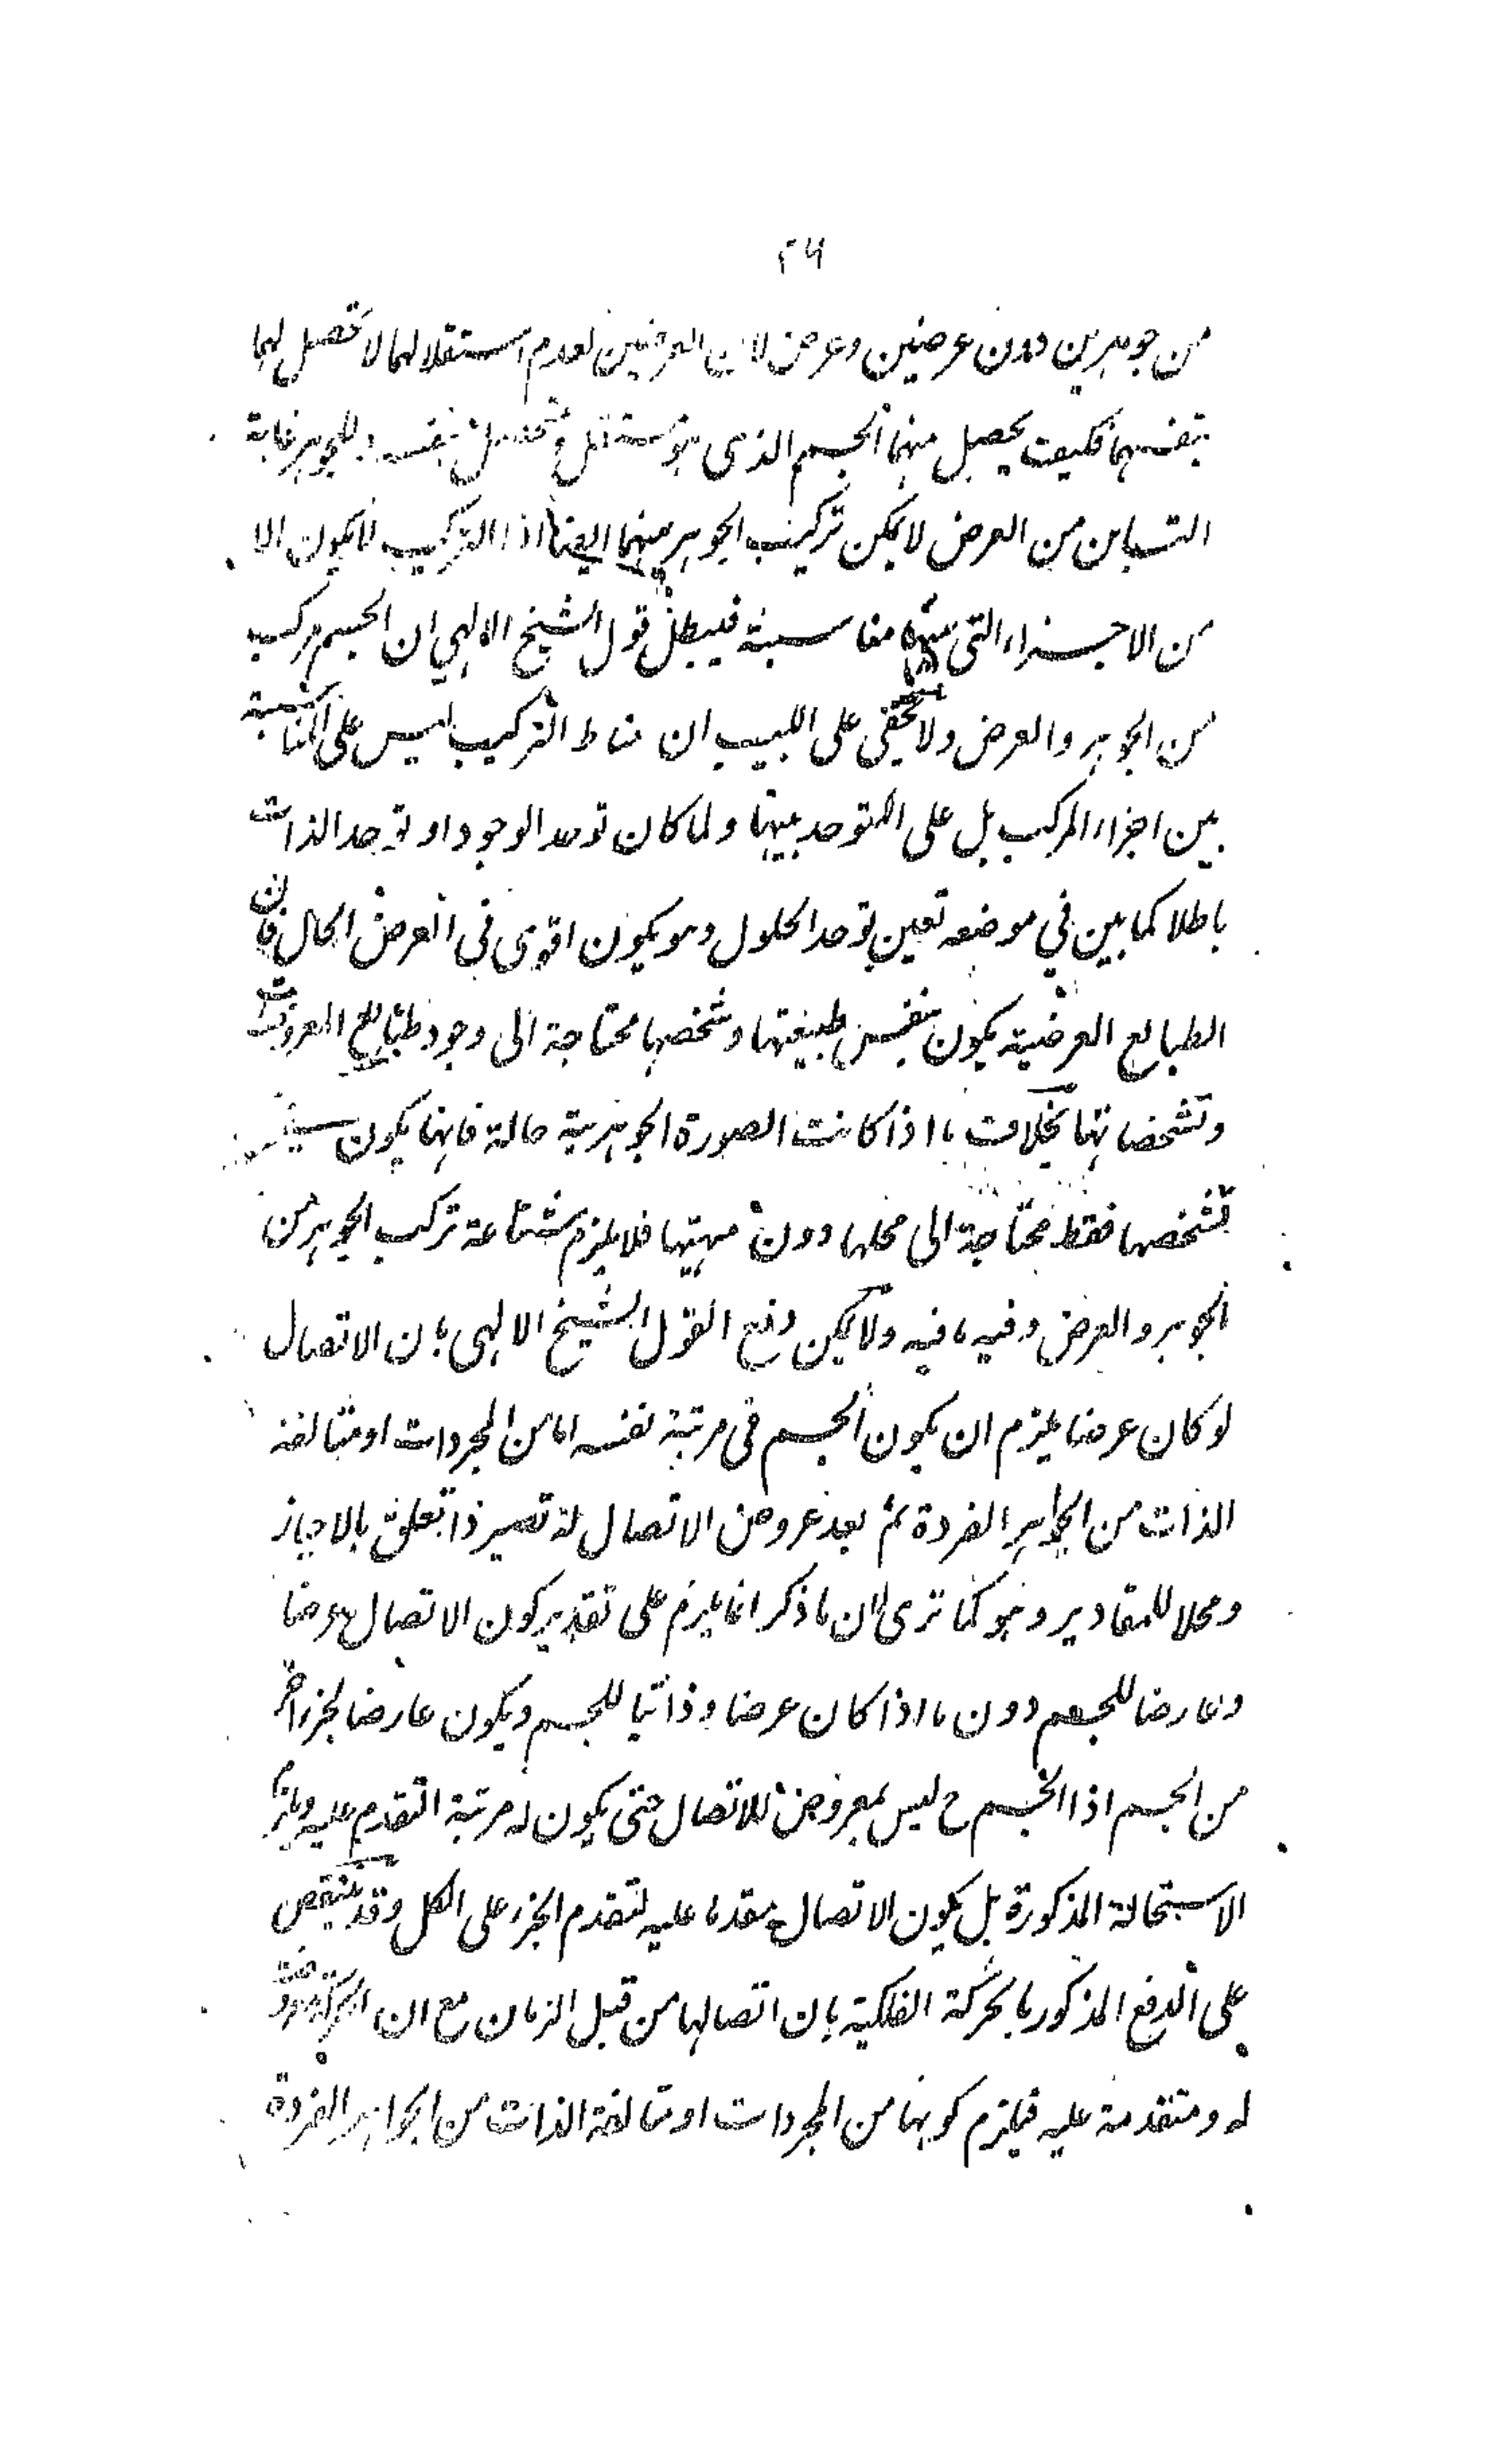 ٢٦
من جوهرين دون عرضين وعرض لان العرضين لعدم استقلالهما لا تحصل لهما
بنفسهما فكيف يحصل منهما الجسم الذى هو مستقل و متحصل بنفسه وللجوهر غاية
التباين من العرض لا يمكن تركيب الجوهر منهما ايضا اذا التركيب لا يكون الا
من الاجزاء التى بينها مناسبة فيبطل قول الشيخ الالهي ان الجسم مركب
من الجوهر والعرض ولا يخفى على اللبيب ان مناط التركيب ليس على المناسبة
بين اجزاء المركب بل على التوحد بينها ولما كان توحد الوجود او توحد الذات
باطلا كما بين في موضعه تعين توحد الحلول وهو يكون اقوى فى العرض الحال فان
الطبايع العرضية يكون بنفس طبيعتها وشخصها محتاجة الى وجود طبايع المعروضات
وتشخصاتها بخلاف ما اذا كانت الصورة الجوهرية حالة فانها يكون
تشخصها فقط محتاجة الى محلها دون مهيتها فلا يلزم شناعة تركب الجوهر من
الجوهر والعرض وفيه ما فيه ولا يمكن دفع القول الشيخ الالهى بان الاتصال
لو كان عرضا يلزم ان يكون الجسم فى مرتبة نفسه اما من المجردات او متالفة
الذات من الجواهر الفردة ثم بعد عروض الاتصال له تصير ذا تعلق بالاحياز
ومحلا للمقادير وهو كما ترى لان ما ذكر انما يلزم على تقدير كون الاتصال عرضا
وعارضا للجسم دون ما اذا كان عرضا وذاتيا للجسم ويكون عارضا لجزء اخر
من الجسم اذا الجسم ح ليس بمعروض للاتصال حتى يكون له مرتبة التقدم عليه ويلزم
الاستحالة المذكورة بل يكون الاتصال مقدما عليه لتقدم الجزء على الكل وقد ينقض
على الدفع المذكور بالحركة الفلكية بان اتصالها من قبل الزمان مع ان الحركة معروضة
له ومتقدمة عليه فيلزم كونها من المجردات او متالفة الذات من الجواهر الفردة